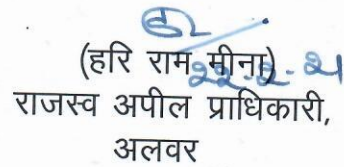 (हरि राम मीना)
22-2-21
राजस्व अपील प्राधिकारी,
अलवर